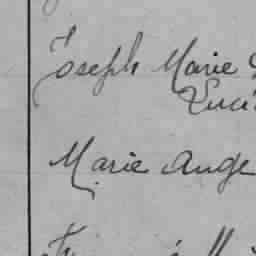 Joseph Marie
Luci
Marie Ange